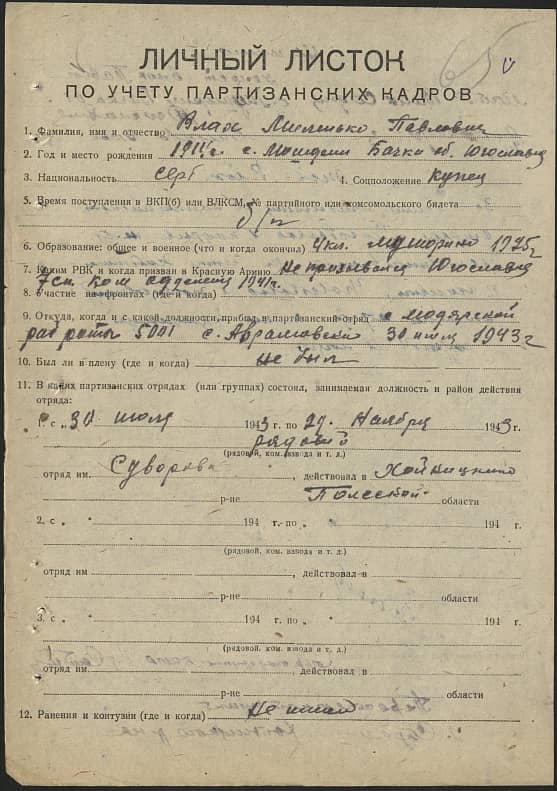 ЛИЧНЫЙ ЛИСТОК
ПО УЧЕТУ ПАРТИЗАНСКИХ КАДРОВ
1. Фамилия, имя и отчество Влах Миленько Павлович
2. Год и место рождения 1911 г. с. Бачка об. Югославия
3. Национальность серб 4. Соцположение купец
5. Время поступления в ВКП(б) или ВЛКСМ, № партийного или комсомольского билета
б/п
6. Образование: общее и военное (что и когда окончил) 4 кл. 1925 г
7. Каким РВК и когда призван в Красную Армию Не призывался Югославия
ком отделения 1941 г.
8. Участие на фронтах (где и когда)
9. Откуда, когда и с какой должности прибыл в партизанский отряд с мадярской
раб роты 5001 с. Аврамовски 30 июля 1943 г
10. Был ли в плену (где и когда) не был
11. В каких партизанских отрядах (или группах) состоял, занимаемая должность и район действия
отряда:
1. с „30 июля 1943 г. по „29. Ноября 1943 г.
рядовой
(рядовой, ком. взвода и т. д.)
отряд им. Суворова, действовал в Хойницкого
р-не Полесской области
2. с „ “ 194 г. по „ “ 194 г.
(рядовой, ком. взвода и т. д.)
отряд им , действовал в
р-не области
3. с „ “ 194 г. по „ “ 194 г.
(рядовой, ком. взвода и т. д.)
отряд им. , действовал в
р-не области
12. Ранения и контузии (где и когда) Не имеет